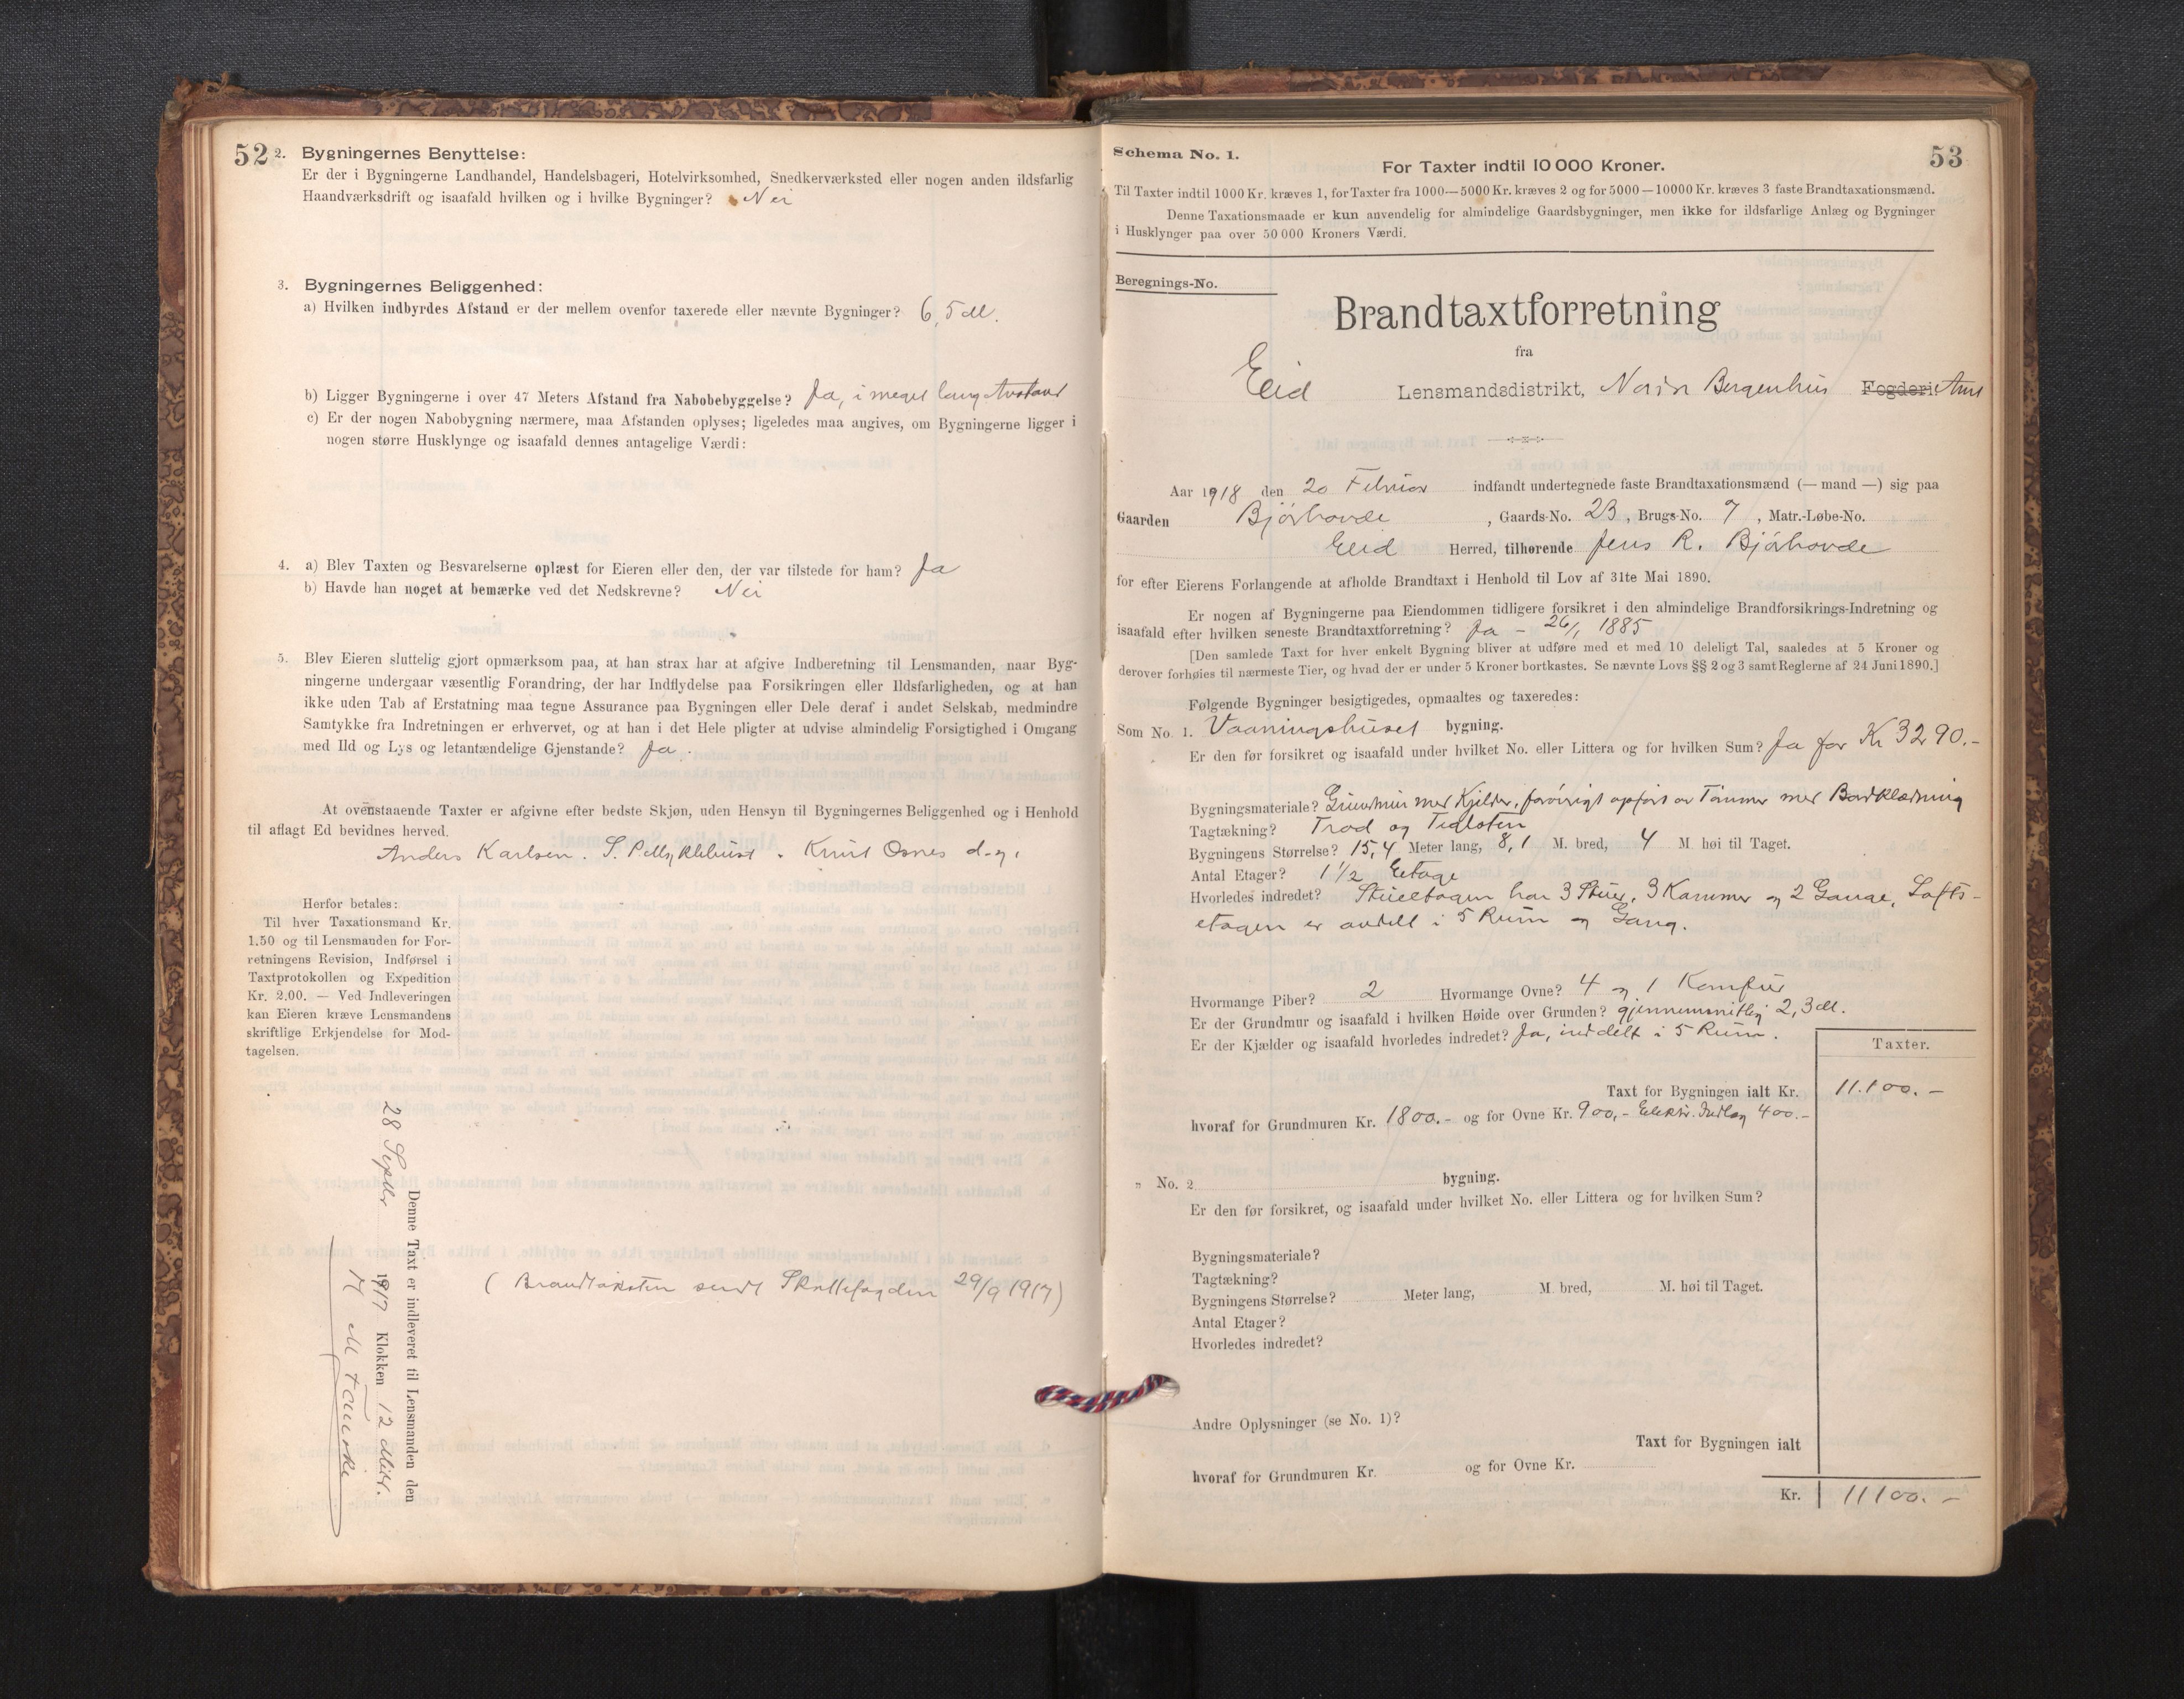 52
2. Bygningernes Benyttelse:
Er der i Bygningerne Landhandel, Handelsbageri, Hotelvirksomhed, Snedkerværksted eller nogen anden ildsfarlig
Haandværksdrift og isaafald hvilken og i hvilke Bygninger? Nei
3. Bygningernes Beliggenhed:
a) Hvilken indbyrdes Afstand er der mellem ovenfor taxerede eller nævnte Bygninger? 6,5 M.
b) Ligger Bygningerne i over 47 Meters Afstand fra Nabobebyggelse? Ja, i meget lang Avstand
c) Er der nogen Nabobygning nærmere, maa Afstanden oplyses; ligeledes maa angives, om Bygningerne ligger i
nogen større Husklynge og isaafald dennes antagelige Værdi:
4. a) Blev Taxten og Besvarelserne oplæst for Eieren eller den, der var tilstede for ham? Ja
b) Havde han noget at bemærke ved det Nedskrevne? Nei
5. Blev Eieren sluttelig gjort opmærksom paa, at han strax har at afgive Indberetning til Lensmanden, naar Byg-
ningerne undergaar væsentlig Forandring, der har Indflydelse paa Forsikringen eller Ildsfarligheden, og at han
ikke uden Tab af Erstatning maa tegne Assurance paa Bygningen eller Dele deraf i andet Selskab, medmindre
Samtykke fra Indretningen er erhvervet, og at han i det Hele pligter at udvise almindelig Forsigtighed i Omgang
med Ild og Lys og letantændelige Gjenstande? Ja.
At ovenstaaende Taxter er afgivne efter bedste Skjøn, uden Hensyn til Bygningernes Beliggenhed og i Henhold
til aflagt Ed bevidnes herved.
Anders Karlsen. S. P. Myklebust. Knut Osnes
Herfor betales:
Til hver Taxationsmand Kr.
1.50 og til Lensmanden for For-
retningens Revision, Indførsel i
Taxtprotokollen og Expedition
Kr. 2.00. — Ved Indleveringen
kan Eieren kræve Lensmandens
skriftlige Erkjendelse for Mod-
tagelsen.
Denne Taxt er indleveret til Lensmanden den
28 Septbr 1917 Klokken 12
(Brandtaksten sendt Skattefogden 29/9 1917)
53
Schema No. 1.
For Taxter indtil 10 000 Kroner.
Til Taxter indtil 1000 Kr. kræves 1, for Taxter fra 1000—5000 Kr. kræves 2 og for 5000—10000 Kr. kræves 3 faste Brandtaxationsmænd.
Denne Taxationsmaade er kun anvendelig for almindelige Gaardsbygninger, men ikke for ildsfarlige Anlæg og Bygninger
i Husklynger paa over 50 000 Kroners Værdi.
Beregnings-No.
Brandtaxtforretning
fra
Eid Lensmandsdistrikt, Nordre Bergenhus Fogderi. Amt
Aar 1918 den 20 Februar indfandt undertegnede faste Brandtaxationsmænd (— mand —) sig paa
Gaarden Bjørhovde, Gaards-No. 23, Brugs-No. 7, Matr.-Løbe-No.
Eid Herred, tilhørende Jens R. Bjørhovde
for efter Eierens Forlangende at afholde Brandtaxt i Henhold til Lov af 31te Mai 1890.
Er nogen af Bygningerne paa Eiendommen tidligere forsikret i den almindelige Brandforsikrings-Indretning og
isaafald efter hvilken seneste Brandtaxtforretning? Ja – 26/1 1885
[Den samlede Taxt for hver enkelt Bygning bliver at udføre med et med 10 deleligt Tal, saaledes at 5 Kroner og
derover forhøies til nærmeste Tier, og hvad der er under 5 Kroner bortkastes. Se nævnte Lovs §§ 2 og 3 samt Reglerne af 24 Juni 1890.]
Følgende Bygninger besigtigedes, opmaaltes og taxeredes:
Som No. 1. Vaaningshuset bygning.
Er den før forsikret og isaafald under hvilket No. eller Littera og for hvilken Sum? Ja for Kr 3290.-
Bygningsmateriale? Grundmur med Kjelder, forøvrigt opført av Tømmer med Bordklædning
Tagtækning? Trod og Teglsten
Bygningens Størrelse? 15,4 Meter lang, 8,1 M. bred, 4 M høi til Taget.
Antal Etager? 1 1/2 Etage
Hvorledes indredet? Stueetagen har 3 Stuer, 3 Kammer og 2 Gange, Lofts-
etagen er avdelt i 5 Rum og Gang.
Hvormange Piber? 2 Hvormange Ovne? 4 og 1 Komfur
Er der Grundmur og isaafald i hvilken Høide over Grunden? gjennemsnitlig 2,3 M.
Er der Kjælder og isaafald hvorledes indredet? Ja, inddelt i 5 Rum.
Taxter.
Taxt for Bygningen ialt Kr. 11.100.-
hvoraf for Grundmuren Kr. 1800.- og for Ovne Kr. 900,- Elektr. Indlæg 400.-
" No. 2 bygning.
Er den før forsikret, og isaafald under hvilket No. eller Littera og for hvilken Sum?
Bygningsmateriale?
Tagtækning?
Bygningens Størrelse? Meter lang, M. bred, M. høi til Taget.
Antal Etager?
Hvorledes indredet?
Andre Oplysninger (se No. 1)?
Taxt for Bygningen ialt
hvoraf for Grundmuren Kr. og for Ovne Kr.
Kr. 11100.-